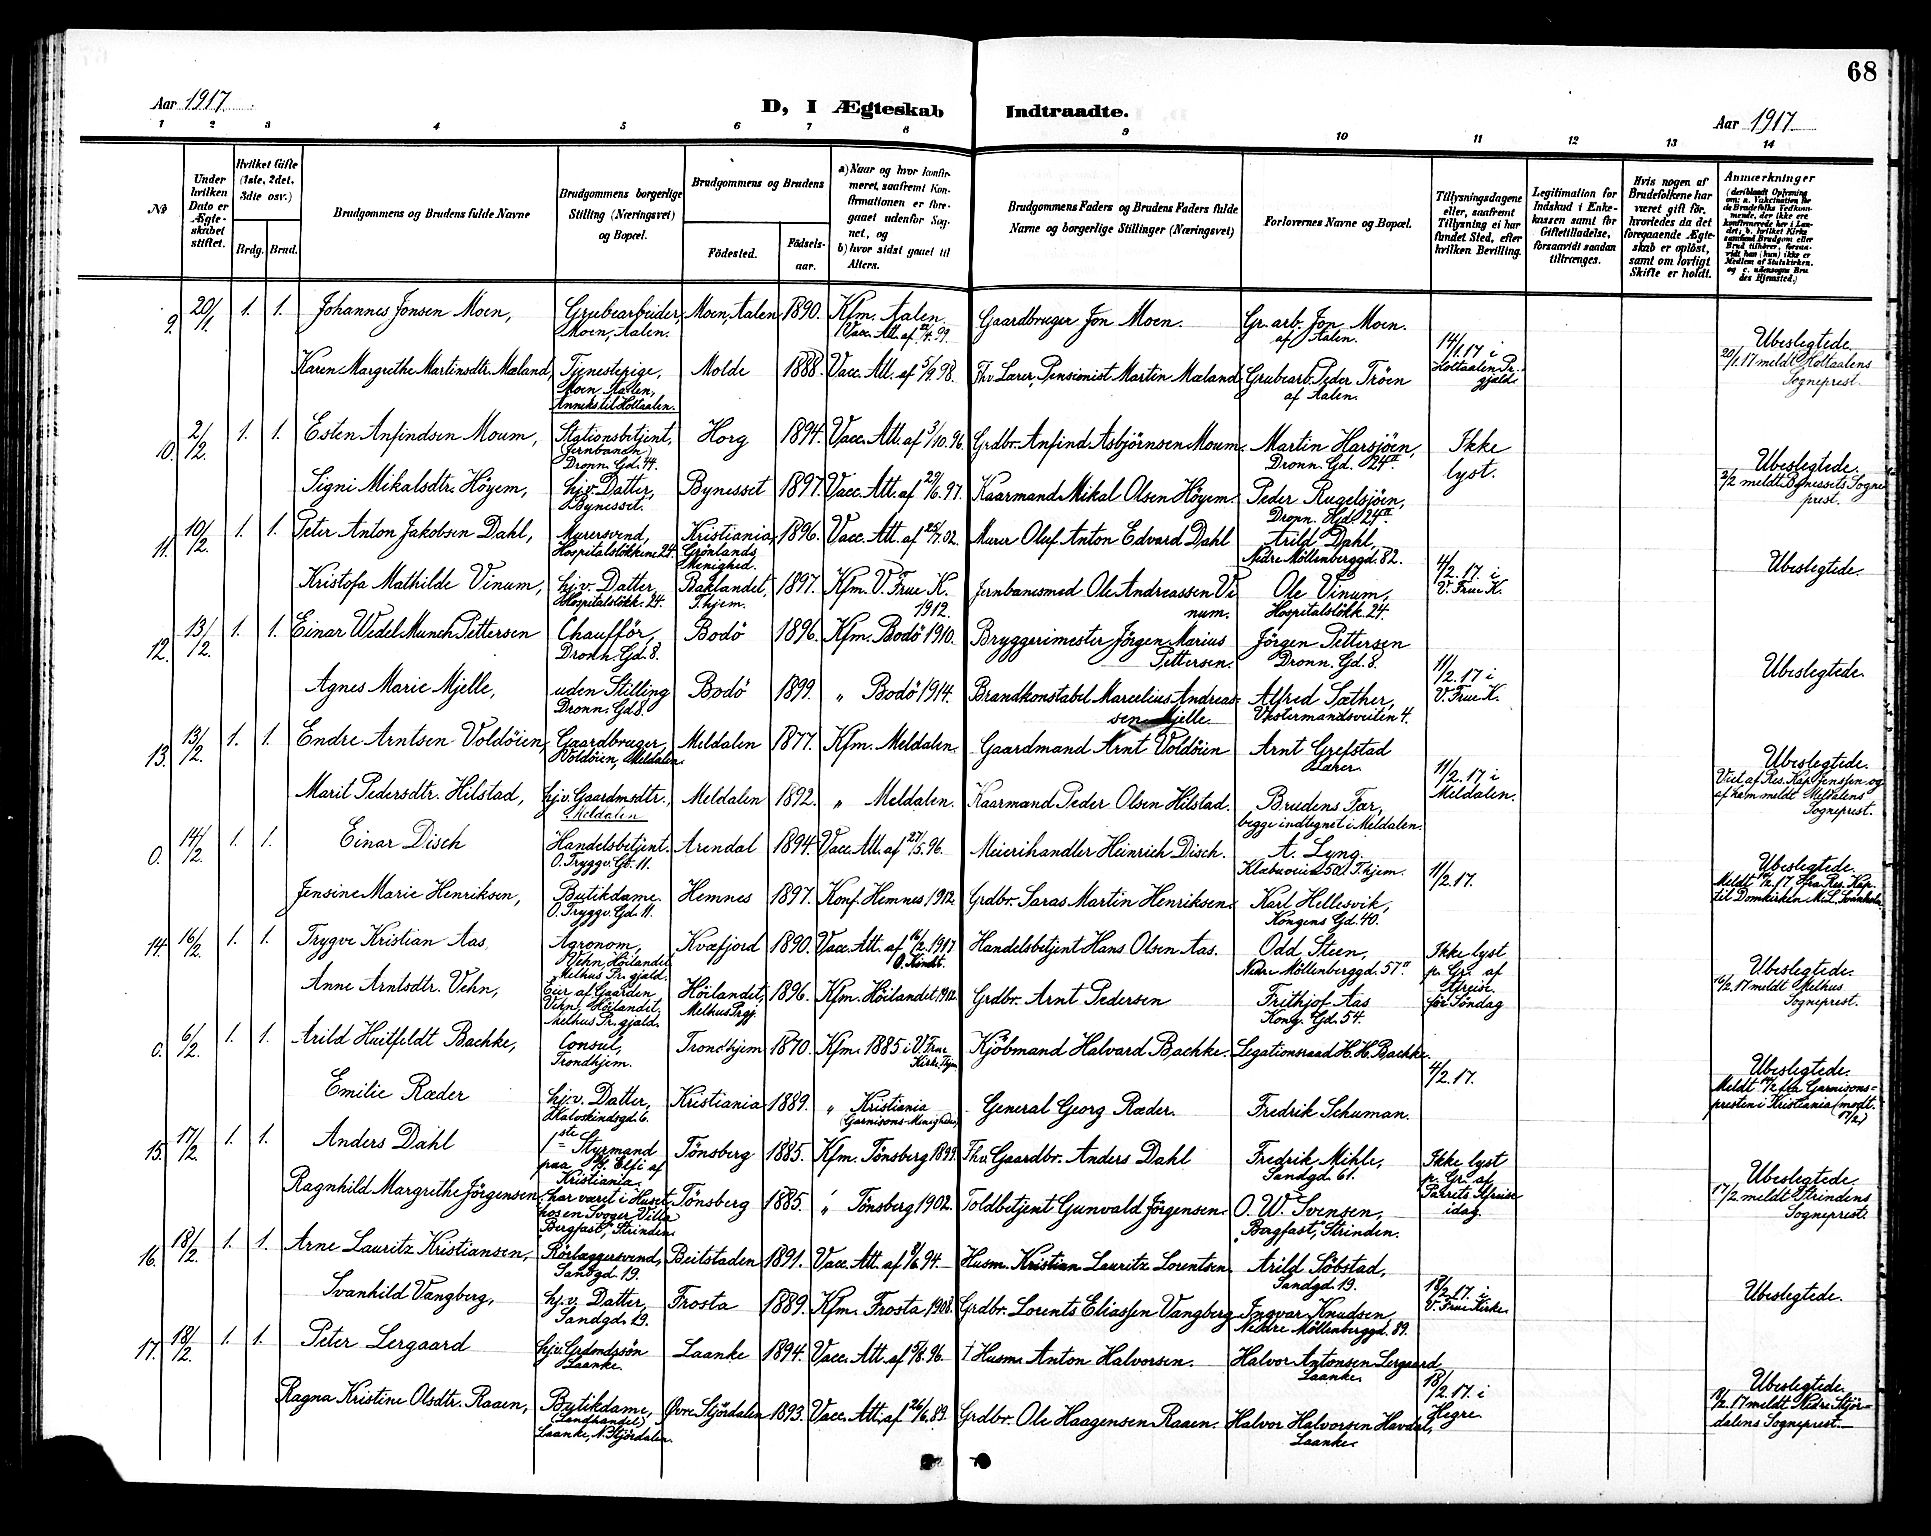 68
Aar 1917
D, I Ægteskab Indtraadte.
Aar 1917
1 2 3 4 5 6 7 8 9 10 11 12 13 14
No
Under hvilken Dato er Ægteskabet stiftet.
Hvilket Gifte (1ste, 2det, 3die osv.)
Brdg. Brud.
Brudgommens og Brudens fulde Navne
Brudgommens borgerlige Stilling (Næringsvei) og Bopæl.
Brudgommens og Brudens
Fødested.
Fødselsaar.
a) Naar og hvor konfirmeret, saafremt Konfirmationen er foregaaet udenfor Sognet, og
b) hvor sidst gaaet til Alters.
Brudgommens Faders og Brudens Faders fulde Navne og borgerlige Stillinger (Næringsvei)
Forlovernes Navne og Bopæl.
Tillysningsdagene eller, saafremt Tillysning ei har fundet Sted, efter hvilken Bevilling.
Legitimation for Indskud i Enkekassen samt for Giftetilladelse, forsaavidt saadan tiltrænges.
Hvis nogen af Brudefolkene har været gift før, hvorledes da det foregaaende Ægteskab er opløst, samt om lovligt Skifte er holdt.
Anmærkninger
(deriblandt Oplysning om: a. Vakcination for de Brudefolks Vedkommende, der ikke ere konfirmerede her i Landet; b. hvilket Kirkesamfund Brudgom eller Brud tilhører, forsaavidt han (hun) ikke er Medlem af Statskirken, og c. udensogns Brudes Hjemsted.)
9. 20/1 1. 1. Johannes Jonsen Moen, Grubearbeider, Moen, Aalen. Moen, Aalen 1890. Kfm. Aalen. Vacc. Att. af 12/4.99. Gaardbruger Jon Moen. Gr. arb. Jon Moen. af Aalen. 14/1.17 i Holtaalen Pr. gjeld. Ubeslegtede. 20/1.17 meldt Holtaalens Sogneprest.
Karen Margrethe Martinsdtr. Mæland, Tjenestepige, Moen, Aalen, Anneks til Holtaalen. Molde 1888. Vacc. Att. af 5/9.98. Fhv. Lærer, Pensionist Martin Mæland. Grubearb. Peder Trøen af Aalen.
10. 2/2. 1. 1. Esten Anfindsen Moum, Stationsbetjent, (Jernbanen) Dronn. Gd. 44. Horg 1894. Vacc. Att. af 3/10.96. Grdbr. Anfind Asbjörnsen Moum. Martin Harsjöen, Dronn. Gd. 24 II. Ikke lyst. Ubeslegtede. 2/2 meldt Bynessets Sogneprest.
Signi Mikalsdtr. Höyem, hj.v. Datter, Bynesset. Bynesset 1897. Vacc. Att. af 29/6.97. Kaarmand Mikal Olsen Höyem. Peder Rugelsjöen, Dronn. Gd. 24 II.
11. 10/2. 1. 1. Peter Anton Jakobsen Dahl, Murersvend, Hospitalslökkene 24. Kristiania, Grönlands Menighed. 1896. Vacc. Att. af 25/7.02. Murer Oluf Anton Edvard Dahl Arild Dahl, Nedre Möllenberggd. 82. 4/2.17. i V. Frue K. Ubeslegtede.
Kristofa Mathilde Vinum, hj.v. Datter, Hospitalslökk. 24. Baklandet, T.hjem. 1897. Kfm. V. Frue K. 1912. Jernbanesmed Ole Andreassen Vinum. Ole Vinum, Hospitalslökk. 24.
12. 13/2. 1. 1. Einar Wedel Munch Pettersen Chaufför, Dronn. Gd. 8. Bodö 1896. Kfm. Bodö 1910. Bryggerimester Jörgen Marius Pettersen. Jörgen Pettersen Dronn. Gd. 8. 11/2.17 i V. Frue K. Ubeslegtede.
Agnes Marie Mjelle, uden Stilling Dronn. Gd. 8. Bodö 1899. " Bodö 1914. Brandkonstabel Marcelius Andreassen Mjelle. Alfred Sæther, Vestermandsveiten 4.
13. 13/2. 1. 1. Endre Arntsen Voldöien, Gaardbruger, Voldöien, Meldalen. Meldalen 1877. Kfm. Meldalen. Gaardmand Arnt Voldöien Arnt Grefstad Lærer. 11/2.17 i Meldalen. Ubeslegtede. Viet af Res. Kap. Jenssen og af ham meldt Meldalens Sogneprest.
Marit Pedersdtr. Hilstad, hj.v. Gaardmsdtr. Meldalen Meldalen 1892. " Meldalen. Kaarmand Peder Olsen Hilstad. Brudens Far, begge indtegnet i Meldalen.
0. 14/2. 1. 1. Einar Disch Handelsbetjent. O. Tryggv. Gd. 11. Arendal 1894. Vacc. Att. af 27/5.96. Meierihandler Heinrich Disch. A. Lyng. Klæbuveien 50 T.hjem. 11/2.17. Ubeslegtede. Meldt 14/2.17 fra Res. Kap. til Domkirken
Jensine Marie Henriksen, Butikdame. O. Tryggv. Gd. 11. Hemnes 1897. Konf. Hemnes 1912. Grdbr. Saras Martin Henriksen. Karl Hellesvik, Kongens Gd. 40.
14. 16/2. 1. 1. Trygve Kristian Aas, Agronom, Vehn, Höilandet Melhus Pr. gjæld. Kvæfjord 1890. Vacc. Att. af 16/2.1917 O. Kindt. Handelsbetjent Hans Olsen Aas. Odd Steen, Nedre Möllenberggd. 57 II. Ikke lyst p. Gr. af Afreise för Söndag Ubeslegtede. 16/2.17 meldt Melhus Sogneprest.
Anne Arntsdtr. Vehn, Eier af Gaarden Vehn, Höilandet, Melhus Pr. gjæld. Höilandet, Melhus Prgj. 1896. Kfm. Höilandet, 1912. Grdbr. Arnt Pedersen Frithjof Aas Kong. Gd. 54.
0. 6/2. 1. 1. Arild Huitfeldt Bachke, Consul, Trondhjem. Trondhjem 1870. Kfm. 1885 i V. Frue Kirke, Thjem. Kjöbmand Halvard Bachke. Legationsraad H. H. Bachke. 4/2.17. Ubeslegtede. Meldt fra Garnisonspresten i Kristiania (modt. 17/2)
Emilie Ræder hj.v. Datter, Haloskindsgd. 6. Kristiania 1889. " Kristiania (Garnisons-Menigheden) General Georg Ræder. Fredrik Schuman.
15. 17/2. 1. 1. Anders Dahl 1ste Styrmand paa Elfi af Kristiania. Tönsberg 1885. Kfm. Tönsberg 1899. Fhv. Gaardbr. Anders Dahl Fredrik Mihle, Sandgd. 61. Ikke lyst p. Gr. af Parrets Afreise idag. Ubeslegtede. 17/2 meldt Strindens Sogneprest.
Ragnhild Margrethe Jörgensen, har været i Huset hos en Svoger Villa "Bergfast", Strinden. Tönsberg 1885. " Tönsberg 1902. Toldbetjent Gunvald Jörgensen. O. W. Svensen, "Bergfast", Strinden.
16. 18/2. 1. 1. Arne Lauritz Kristiansen, Rörlæggersvend, Sandgd. 19. Beitstaden 1891. Vacc. Att. af 9/6.94. Husm. Kristian Lauritz Lorentsen. Arild Söbstad, Sandgd. 19. 18/2.17. i V. Frue Kirke. Ubeslegtede.
Svanhild Vangberg, hj.v. Datter, Sandgd. 19. Frosta 1889. Kfm. Frosta 1908. Grdbr. Lorents Eliassen Vangberg Ingvar Knudsen, Nedre Möllenberggd. 89.
17. 18/2. 1. 1. Peter Lergaard hj.v. Grdmdssön Laanke. Laanke 1894. Vacc. Att. af 9/8.96. † Husm. Anton Halvorsen. Halvor Antonsen Lergaard Laanke. 18/2.17. i Hegre. Ubeslegtede. 18/2.17 meldt Nedre Stjördalens Sogneprest.
Ragna Kristine Olsdtr. Raaen, Butikdame, (Landhandel) Laanke, N. Stjördalen. Övre Stjördalen 1893. Vacc. Att. af 26/6.89. Grdbr. Ole Haagensen Raaen. Halvor Halvorsen Havdal, Laanke.